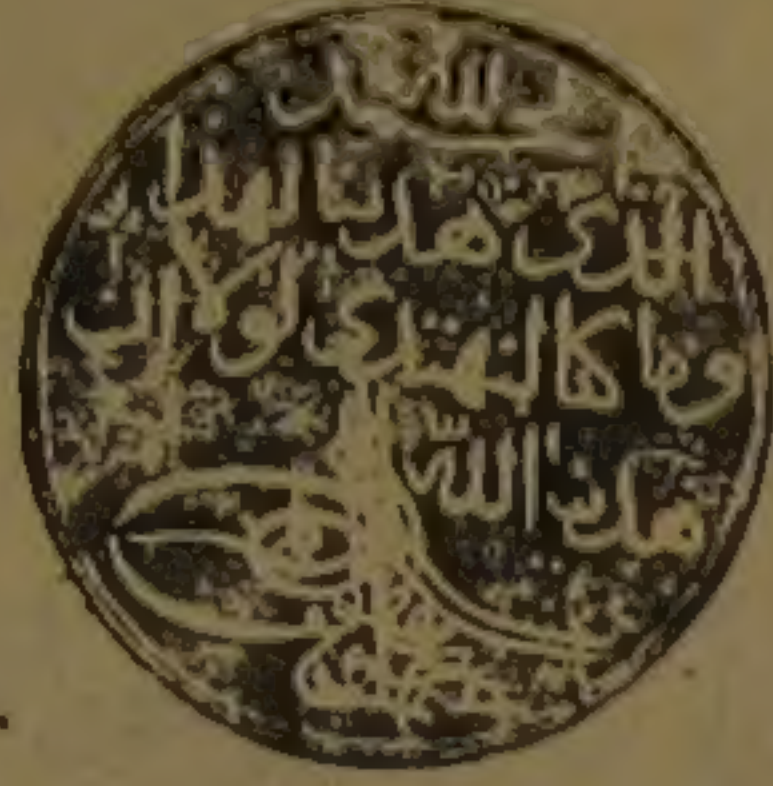 الحمد لله
الذى هدنا لهذا
وما كنا لنهتدى لولا ان
هدنا الله